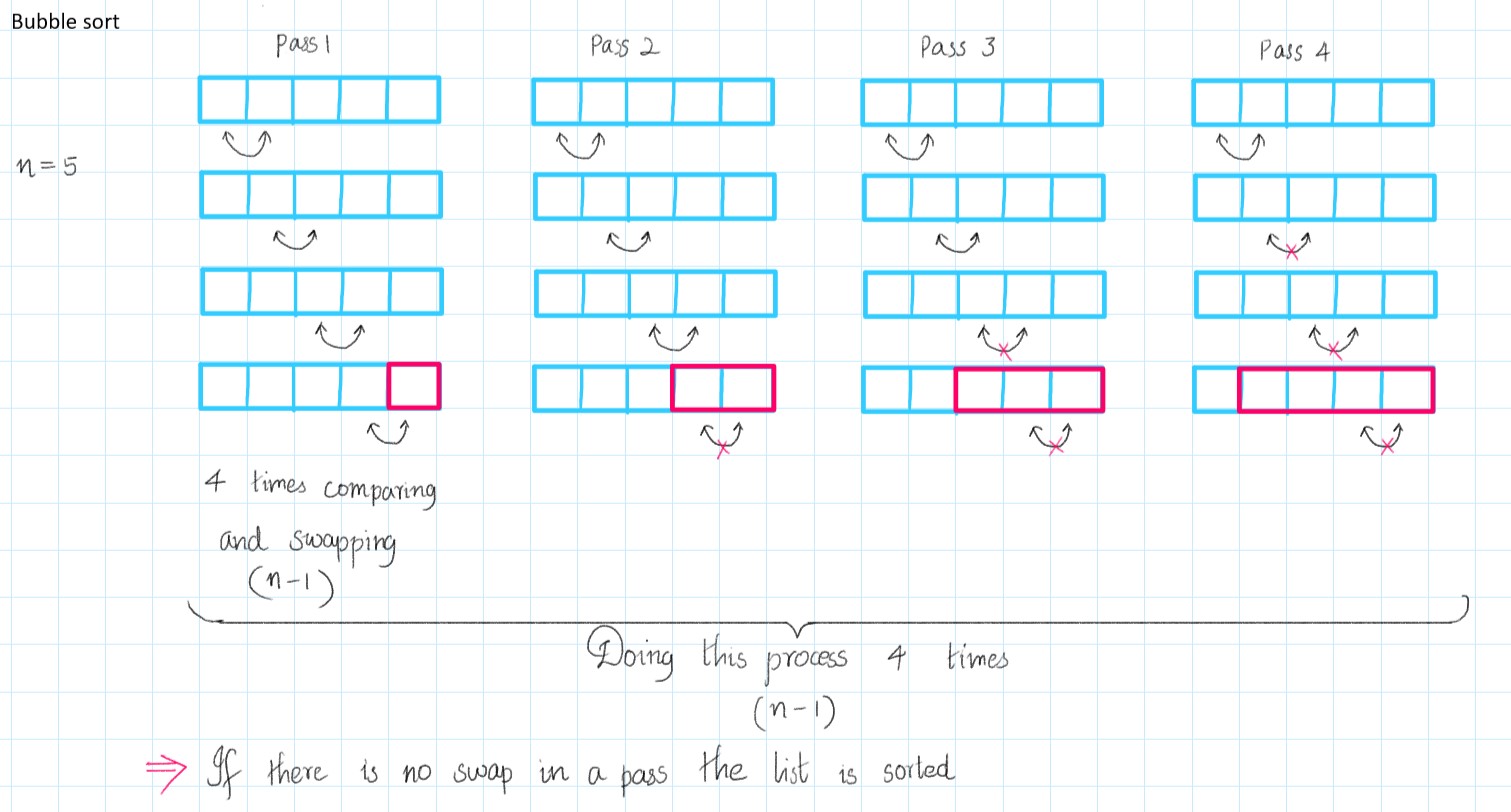 Bubble sort
Pass 1
Pass 2
Pass 3
Pass 4
n = 5
4 times comparing
and swapping
(n-1)
Doing this process 4 times
(n-1)
⇒ If there is no swap in a pass the list is sorted